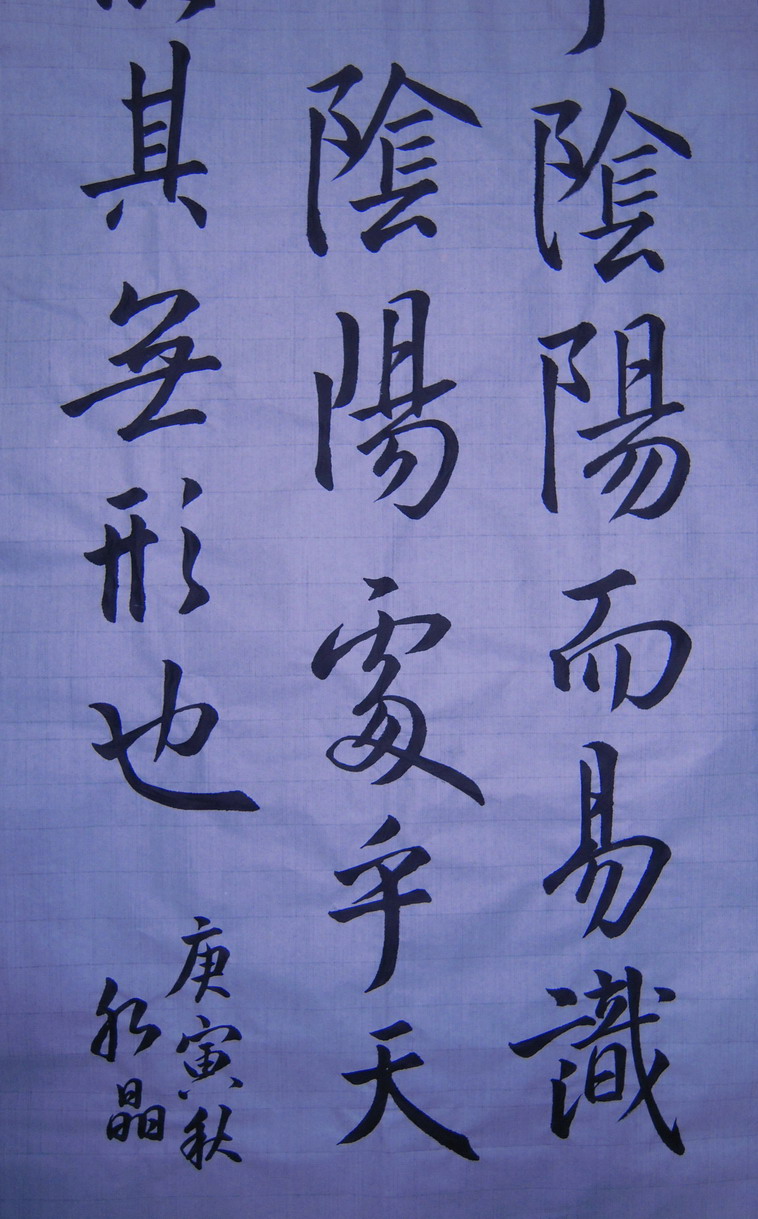 陰陽而易識
陰陽處乎天
其無形也
庚寅秋
水晶